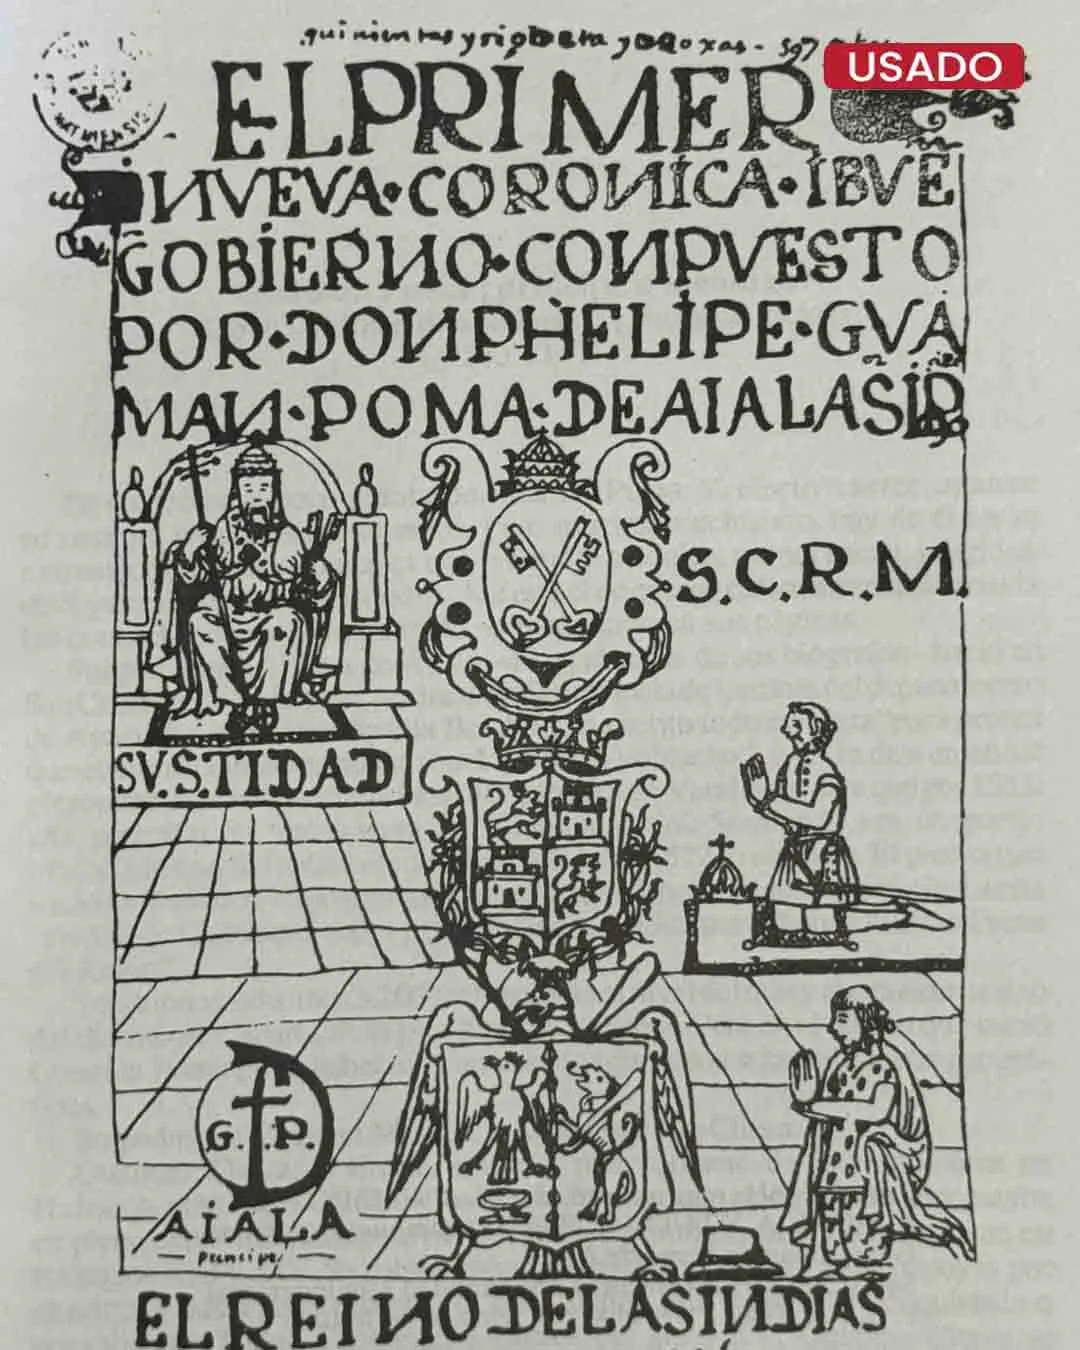 quinientas y
USADO
EL PRIMER
NVEVA·CORONICA·IBVE
GOBIERNO·CONPVESTO
POR·DON PHELIPE·GVA
MAN·POMA·DE AIALA
S.C.R.M.
SV.S.TIDAD
G.I.P.
AIALA
principe
EL REINO DE LAS INDIAS